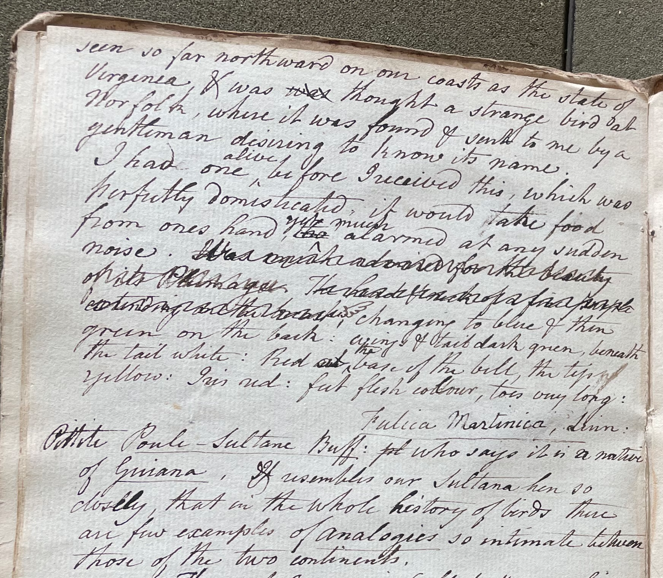 seen so far northward on our coasts as the state of
Virginea, & was was thought a strange bird at
Norfolk, where it was found & sent to me by a
gentleman desiring to know its name.
I had one alive, before I received this, which was
perfectly domesticated, it would take food
from ones hand yet much alarmed at any sudden
noise. Was much admired for the beauty
of its Plumage. The head & neck of a fine purple
extending to the changing to blue & then
green on the back: wing & tail dark green, beneath
the tail white: Red at the base of the bill, the tip
yellow: Iris red: feet flesh colour, toes very long:
Fulica Martinica, Linn:
Petite Poule-Sultane Buff: pl who says it is a native
of Guiana. It resembles our Sultana hen so
closely, that in the whole history of birds there
are few examples of analogies so intimate between
those of the two continents.